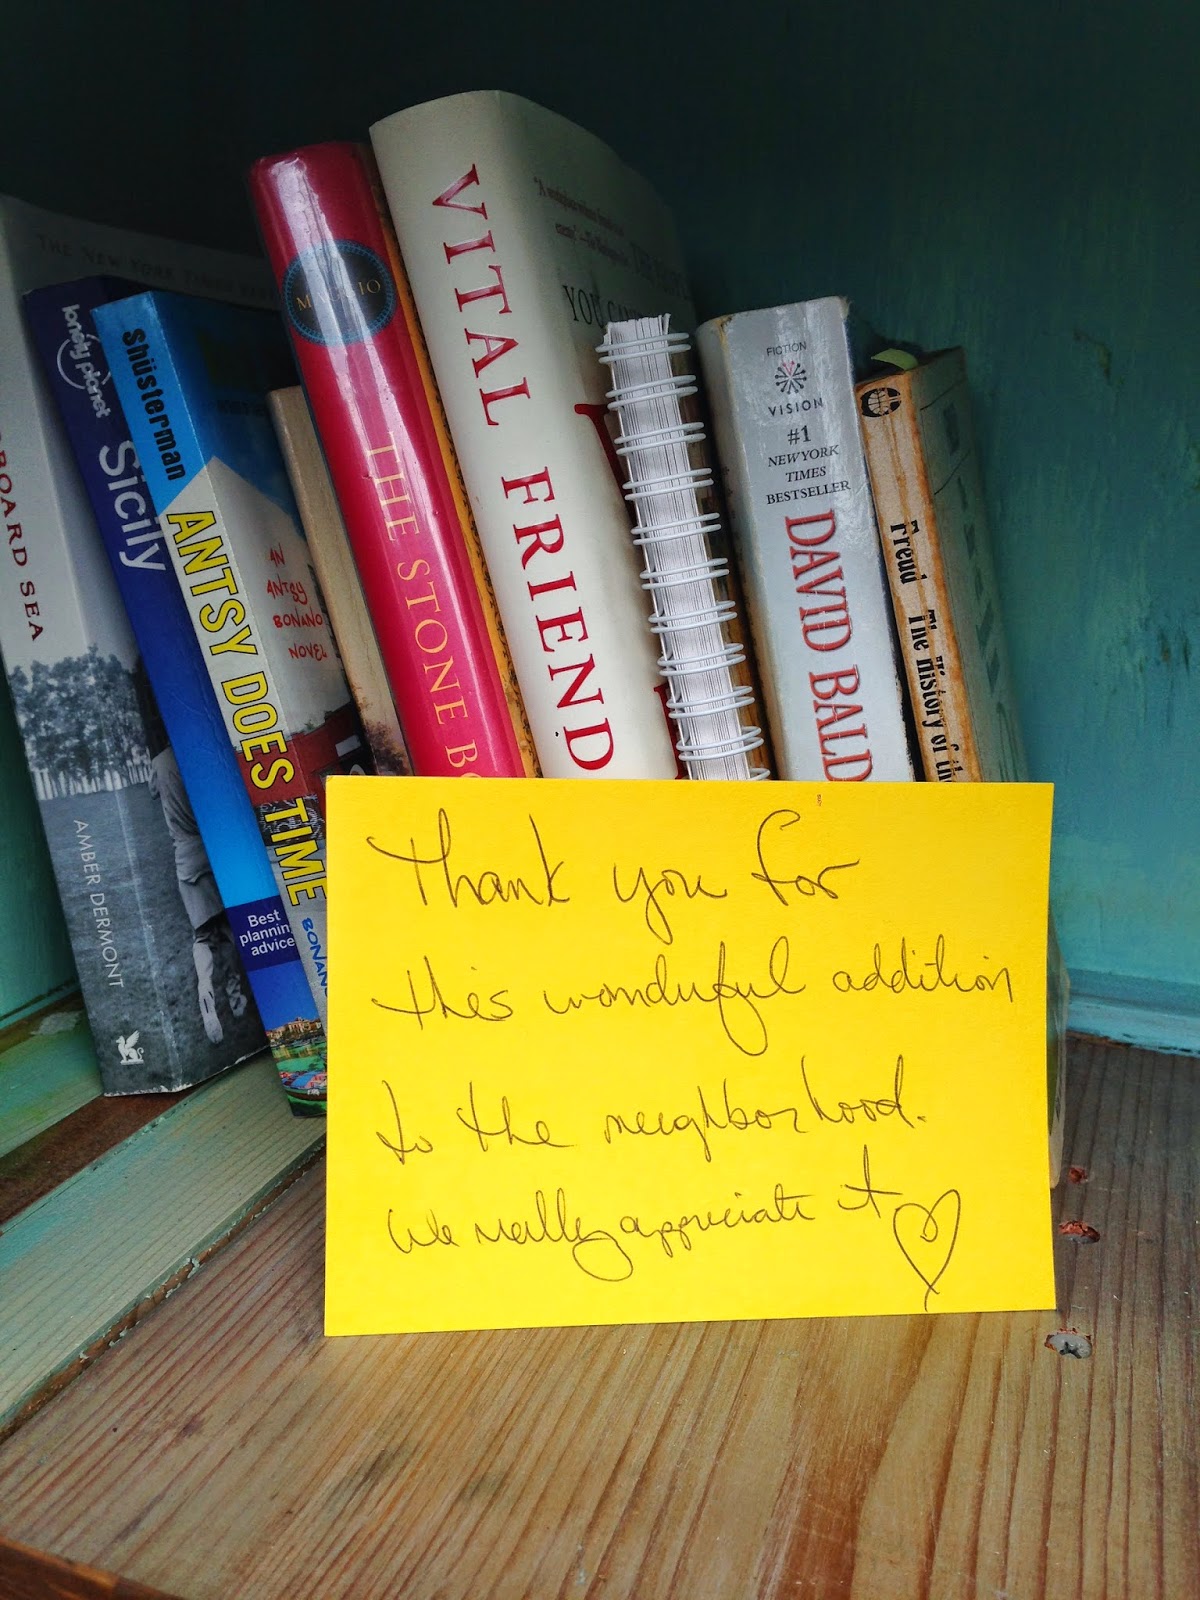 THE NEW YORK TIMES
BOARD SEA
AMBER DERMONT
lonely planet
Sicily
Best
planning
advice
Shusterman
ANTSY DOES TIME
AN
ANTSY
BONANO
NOVEL
THE STONE
VITAL FRIEND
YOU CAN'T
FICTION
VISION
#1
NEW YORK
TIMES
BESTSELLER
DAVID BALD
Freud The History of the
Thank you for
this wonderful addition
to the neighborhood.
We really appreciate it